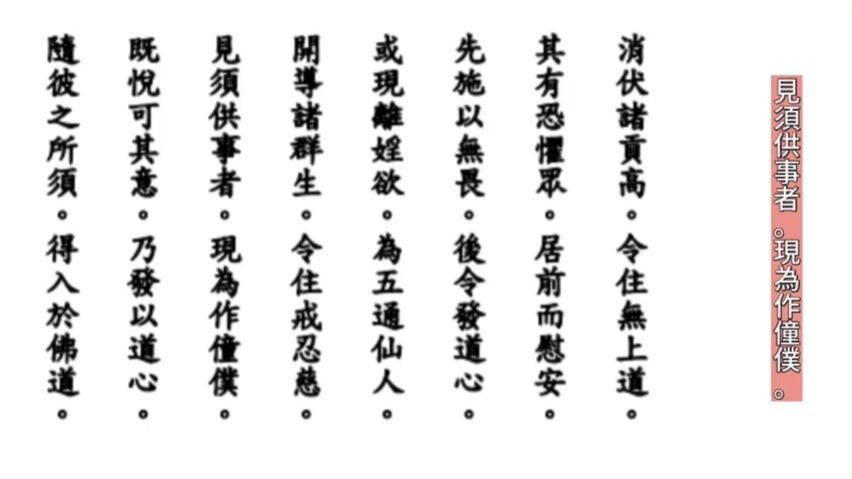 見須供事者。現為作僮僕。
消伏諸貢高。令住無上道。
其有恐懼眾。居前而慰安。
先施以無畏。後令發道心。
或現離婬欲。為五通仙人。
開導諸群生。令住戒忍慈。
見須供事者。現為作僮僕。
既悅可其意。乃發以道心。
隨彼之所須。得入於佛道。